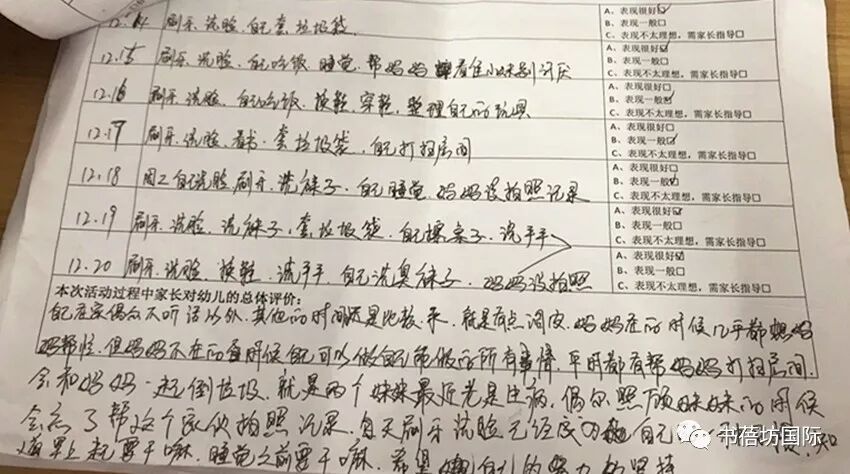 12.14 刷牙.洗脸.自己套垃圾袋.
A、表现很好☑
B、表现一般□
C、表现不太理想，需家长指导□
12.15 刷牙.洗脸.自己吃饭.睡觉.帮妈妈看住小妹别讨厌
A、表现很好☑
B、表现一般□
C、表现不太理想，需家长指导□
12.16 刷牙.洗脸.自己吃饭.换鞋.穿鞋.整理自己的玩具
A、表现很好□
B、表现一般☑
C、表现不太理想，需家长指导□
12.17 刷牙.洗脸.看书.套垃圾袋.自己打扫房间
A、表现很好□
B、表现一般☑
C、表现不太理想，需家长指导□
12.18 周二自己洗脸.刷牙.洗袜子.自己睡觉.妈妈没拍照记录
A、表现很好□
B、表现一般☑
C、表现不太理想，需家长指导□
12.19 刷牙.洗脸.洗袜子.套垃圾袋.自己擦桌子.洗
A、表现很好☑
B、表现一般□
C、表现不太理想，需家长指导□
12.20 刷牙.洗脸.换鞋.自己洗臭袜子.妈妈没拍照
A、表现很好☑
B、表现一般□
C、表现不太理想，需家长指导□
本次活动过程中家长对幼儿的总体评价：
自己在家偶尔不听话以外.其他的时间还是比较乖.就是有点调皮.妈妈在的时候几乎都想妈
妈帮忙.但妈妈不在的时候自己可以做自己能做的所有事情.平时都有帮妈妈打扫房间.
会和妈妈一起倒垃圾.就是两个妹妹最近老是生病.偶尔照顾妹妹的时候
会忘了帮这个家伙拍照记录.每天刷牙洗脸已经成为自己 知
道早上起要干嘛.睡觉之前要干嘛.希望 自己的努力 坚持
书蓓坊国际